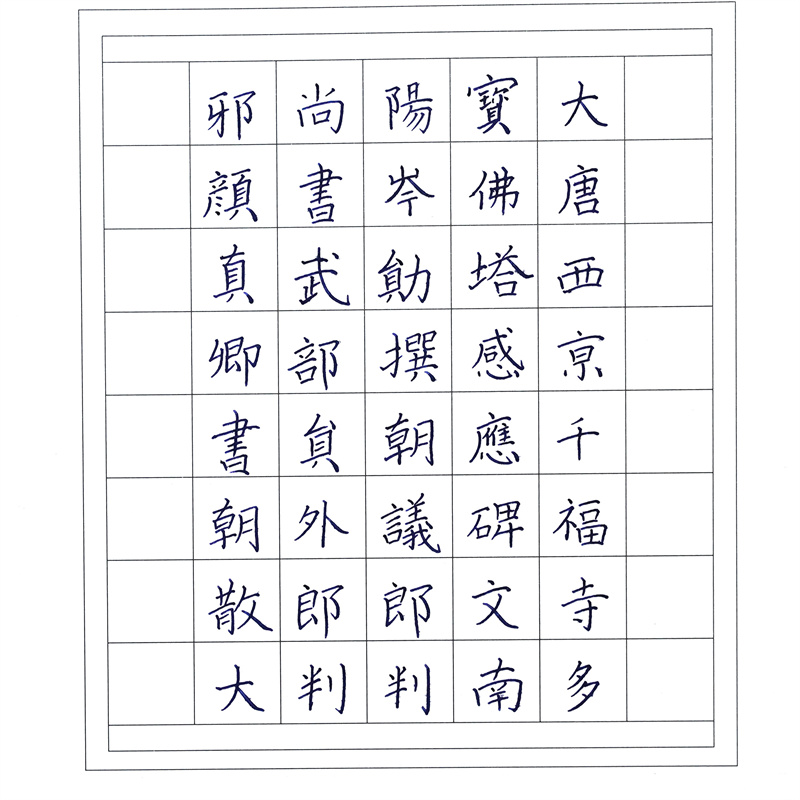 大唐西亰千福寺多
寶佛塔感應碑文南
陽岑勛撰朝議郎判
尚書武部貟外郎判
邪顔真卿書朝散大